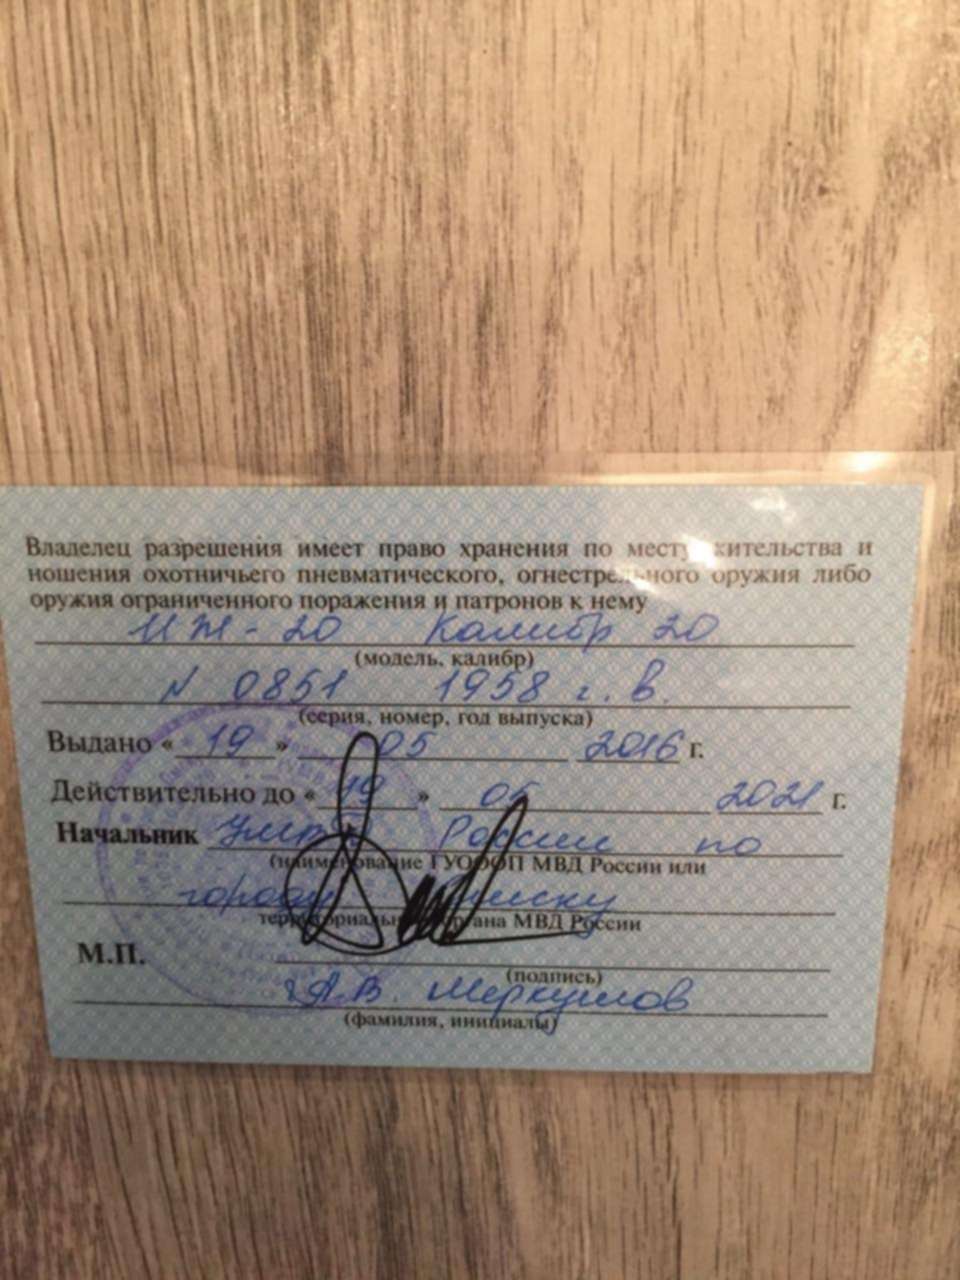 Владелец разрешения имеет право хранения по месту жительства и
ношения охотничьего пневматического, огнестрельного оружия либо
оружия ограниченного поражения и патронов к нему
ИЖ-20 Калибр 20
(модель, калибр)
N 0851 1958 г. в.
(серия, номер, год выпуска)
Выдано « 19 » 05 2016 г.
Действительно до « 19 » 05 2021 г.
Начальник России по
(наименование ГУООП МВД России или
городу
территориального органа МВД России
М.П.
(подпись)
А.В. Меркушов
(фамилия, инициалы)